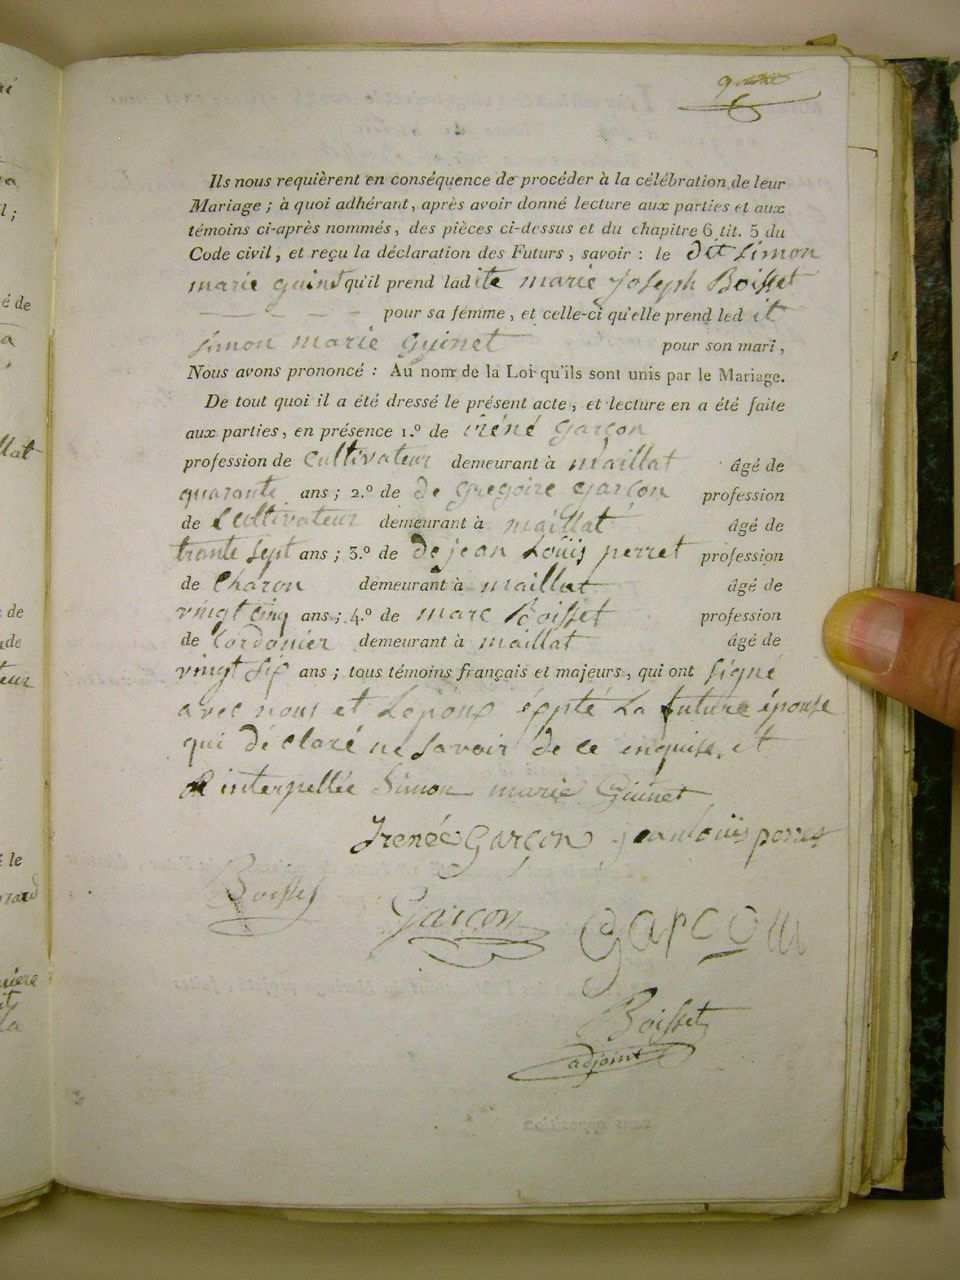 Ils nous requièrent en conséquence de procéder à la célébration de leur
Mariage ; à quoi adhérant, après avoir donné lecture aux parties et aux
témoins ci-après nommés, des pièces ci-dessus et du chapitre 6 tit. 5 du
Code civil, et reçu la déclaration des Futurs, savoir : le dit Simon
marie guint qu'il prend ladite marie Joseph Boisset
pour sa femme, et celle-ci qu'elle prend led it
Simon marie Guinet pour son mari,
Nous avons prononcé : Au nom de la Loi qu'ils sont unis par le Mariage.
De tout quoi il a été dressé le présent acte, et lecture en a été faite
aux parties, en présence 1.º de iréné Garçon
profession de Cultivateur demeurant à maillat âgé de
quarante ans ; 2.º de de Gregoire Garçon profession
de Cultivateur demeurant à maillat âgé de
trante sept ans ; 3.º de de jean Louis perret profession
de Charon demeurant à maillat âgé de
vingt cinq ans ; 4.º de marc Boisset profession
de Cordonier demeurant à maillat âgé de
vingt six ans ; tous témoins français et majeurs, qui ont signé
avec nous et Lepoux éxpté La future épouse
qui déclaré ne savoir de ce enquise et
interpellée Simon marie Guinet
Irenée Garçon jean louis perret
Boisset
Garçon Garçon
Boisset
adjoint